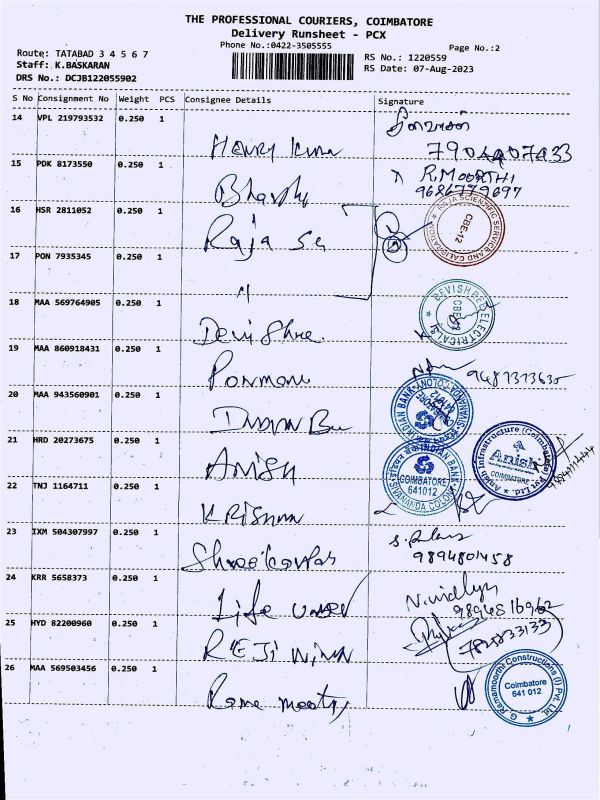 THE PROFESSIONAL COURIERS, COIMBATORE
Delivery Runsheet - PCX
Phone No.:0422-3505555
Page No.:2
Route: TATABAD 3 4 5 6 7
Staff: K.BASKARAN
DRS No.: DCJB122055902
RS No.: 1220559
RS Date: 07-Aug-2023
S No Consignment No Weight PCS Consignee Details Signature
14 VPL 219793532 0.250 1
Henry
15 PDK 8173550 0.250 1
R.MOORTHI
9686779697
16 HSR 2811052 0.250 1
Raja Se
RAJA SCIENTIFIC SERVICE AND CALIBRATION
CBE-12
17 PON 7935345 0.250 1
"
18 MAA 569764905 0.250 1
Devi Shree
19 MAA 860918431 0.250 1
Ponmani
9487373635
20 MAA 943560901 0.250 1
Indian Ba
INDIAN BANK
21 HRD 20273675 0.250 1
Anish
INDIAN BANK
COIMBATORE
641012
SIVANANDA COLONY
Anish Infrastructure (Coimbatore) Pvt Ltd.
Anish
COIMBATORE
22 TNJ 1164711 0.250 1
KRISHNA
23 IXM 504307997 0.250 1
9894801458
24 KRR 5658373 0.250 1
Life
9894816962
25 HYD 82200960 0.250 1
26 MAA 569503456 0.250 1
Rama
G Ramamoorthi Constructions (I) Pvt. Ltd.
Coimbatore
641 012